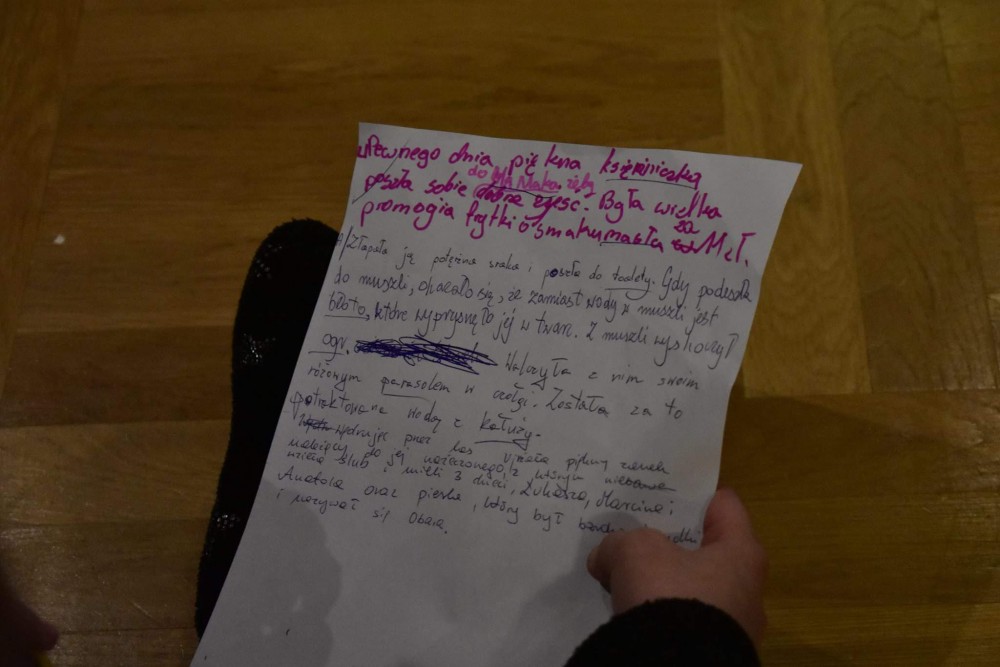 Pewnego dnia piękna księżniczka
do MA Maka, żeby
poszła sobie dobrze zjeść. Była wielka
za
promogia frytki o smaku masła M zł.
Złapała ją potężna sraka i poszła do toalety. Gdy podeszła
do muszli, okazało się, że zamiast wody w muszli jest
błoto, które wyprysnęło jej w twarz. Z muszli wyskoczył
ogr. Walczyła z nim swoim
różowym parasolem w czołgi. Została za to
potraktowana wodą z kałuży.
Wędrując przez las ujrzała piękny zamek
należący do jej narzeczonego, z którym
wzięła ślub i mieli 3 dzieci, Łukasza, Marcina i
Anatola oraz pieska, który był
i nazywał się Obara.